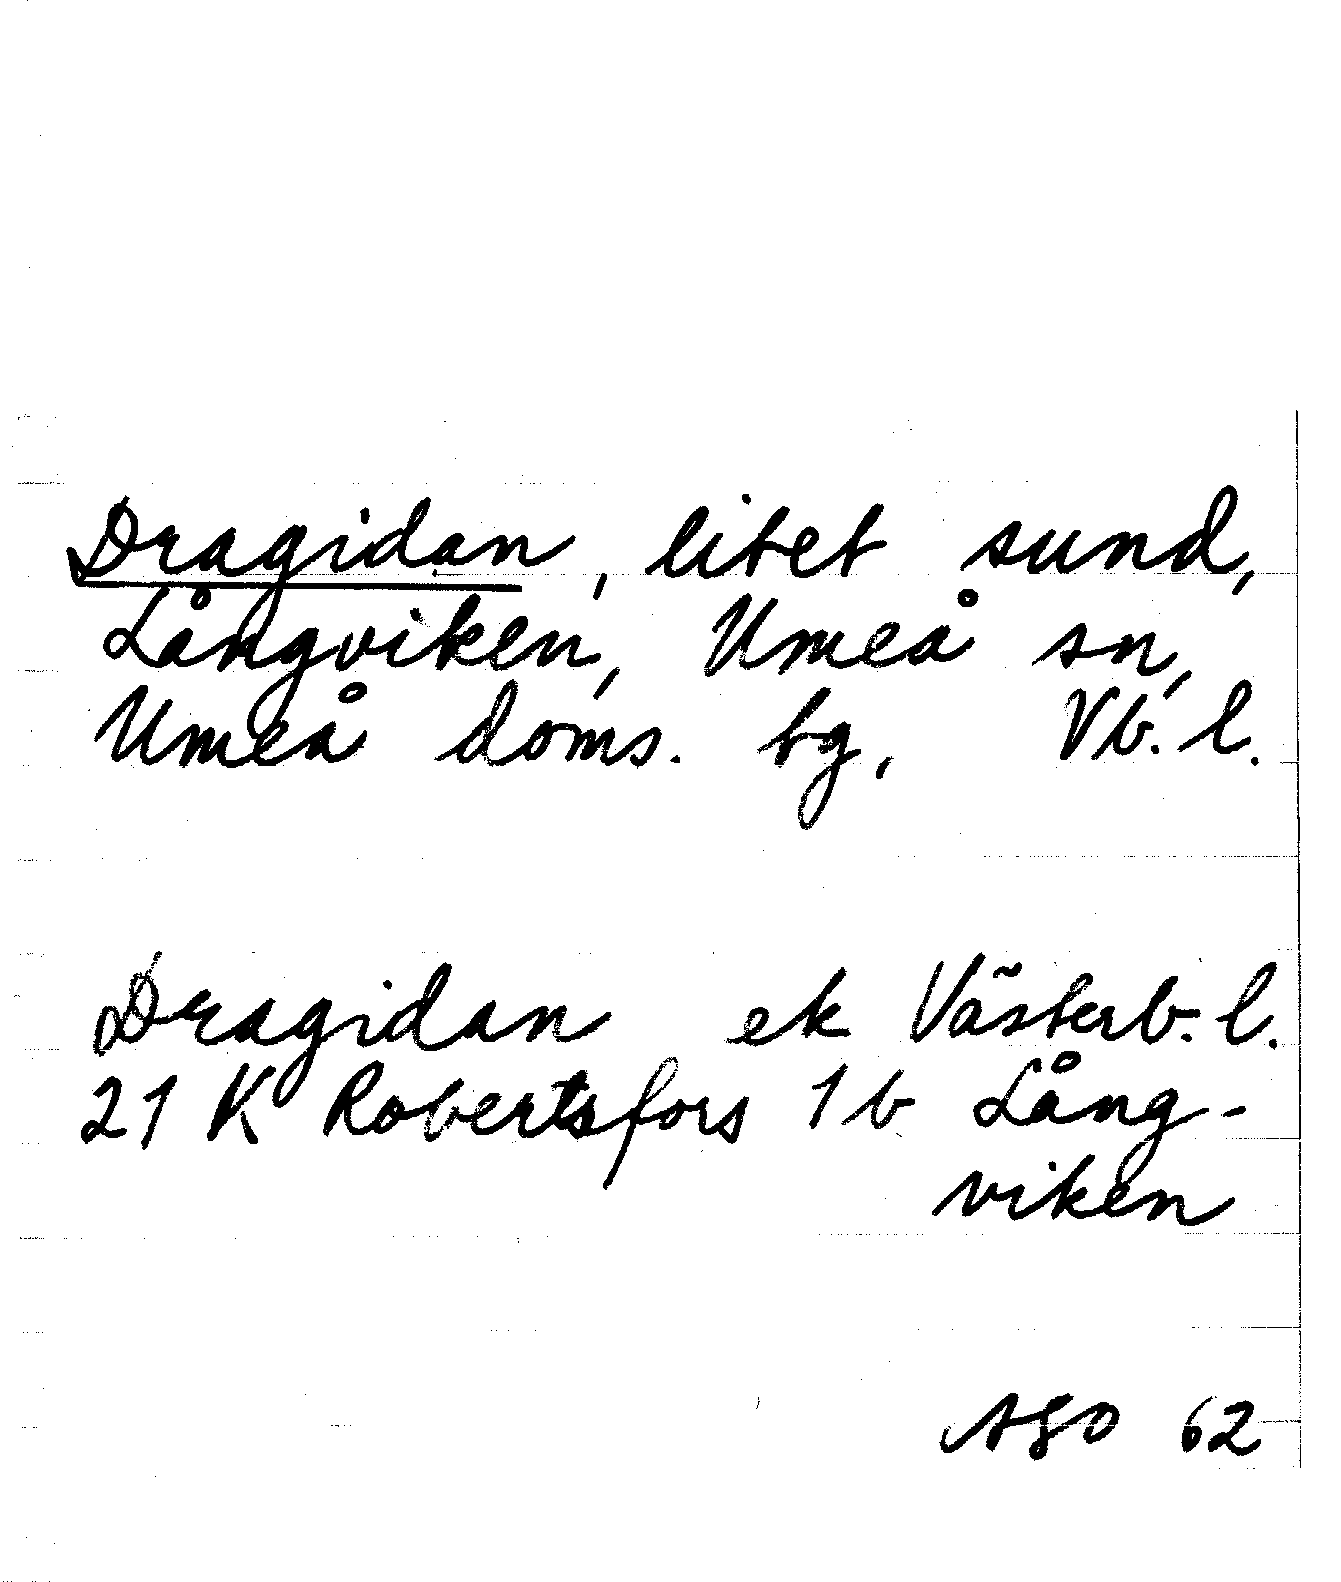 Dragidan, litet sund,
Långviken, Umeå sn,
Umeå doms. tg, Vb. l.
Dragidan ek Västerb. l.
21 K Robertsfors 1 b Lång-
viken
ASO 62